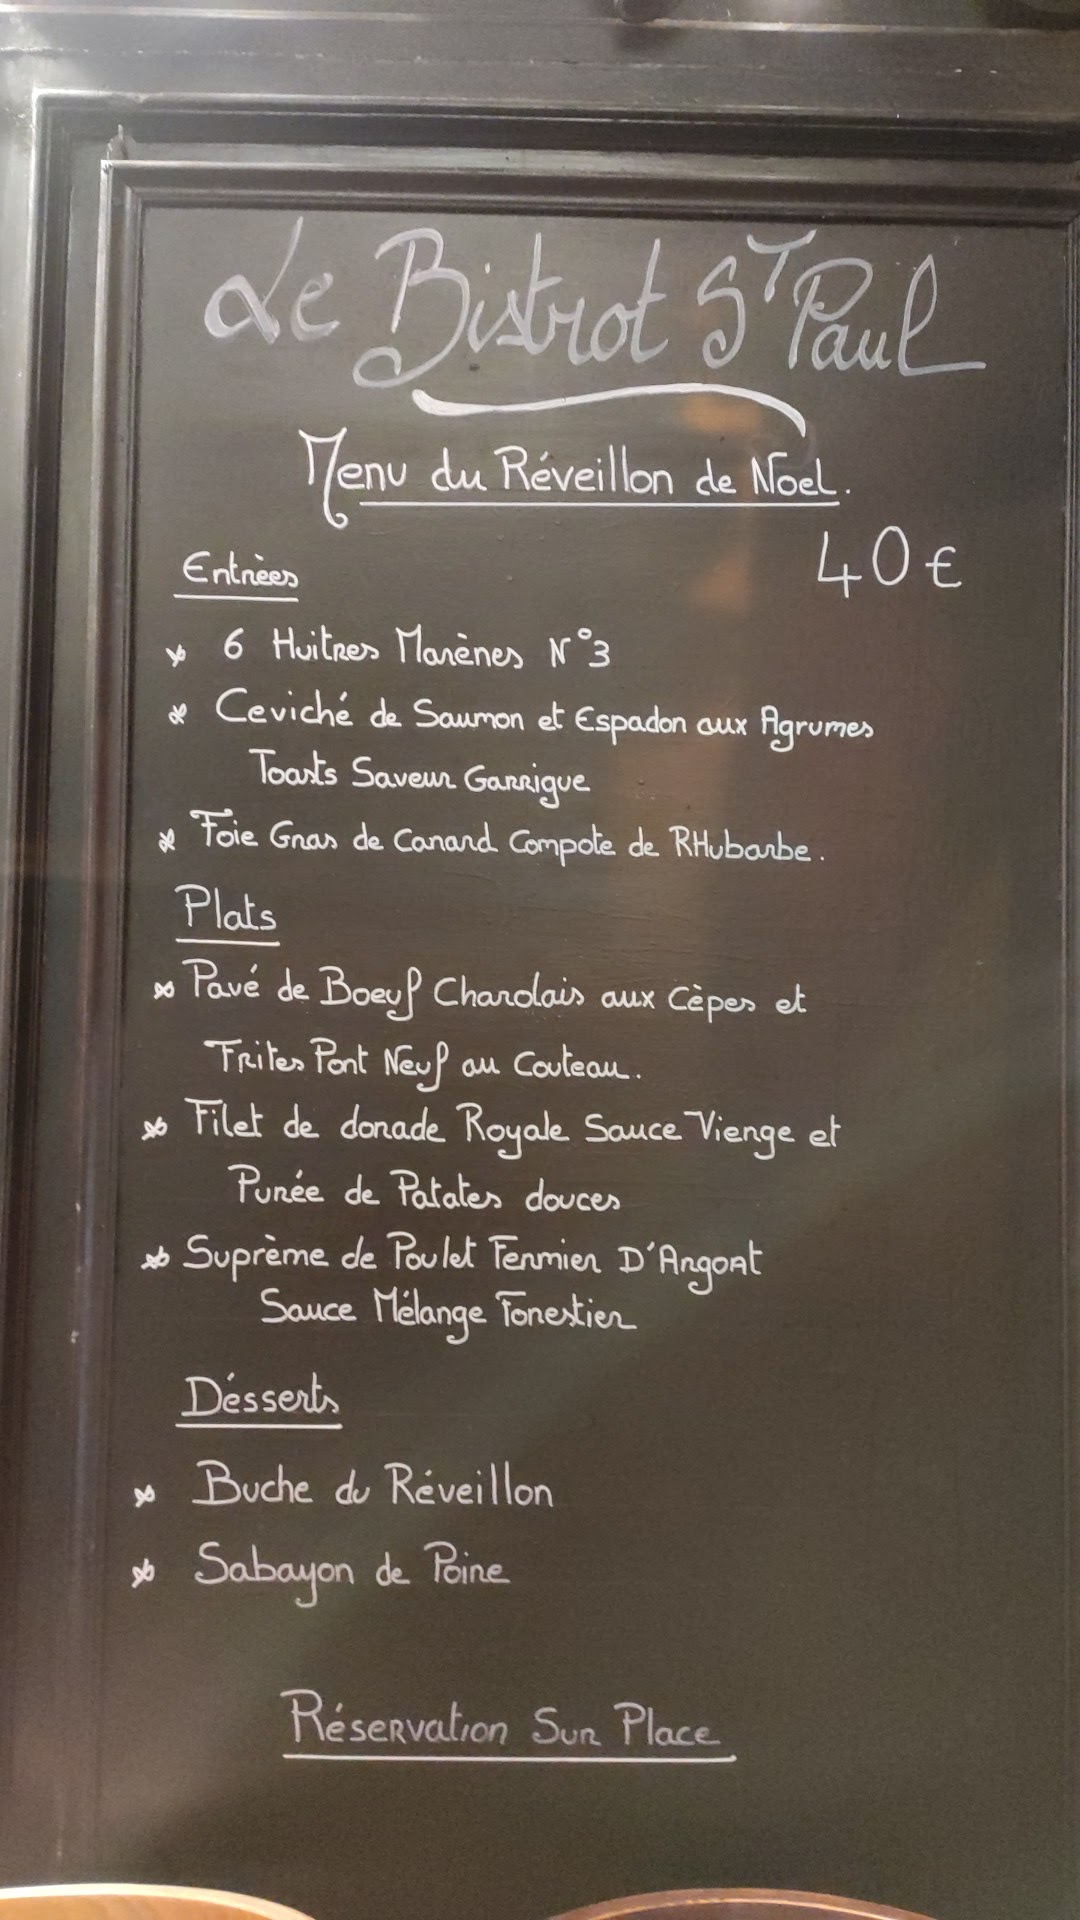 Le Bistrot ST Paul
Menu du Réveillon de Noel.
40€
Entrèes
6 Huitres Marènes N°3
Ceviché de Saumon et Espadon aux Agrumes
Toasts Saveur Garrigue
Foie Gras de Canard Compote de RHubarbe.
Plats
Pavé de Boeuf Charolais aux Cèpes et
Frites Pont Neuf au Couteau.
Filet de dorade Royale Sauce Vierge et
Purée de Patates douces
Suprème de Poulet Fermier D'Argoat
Sauce Mélange Forestier
Désserts
Buche du Réveillon
Sabayon de Poire
Réservation Sur Place